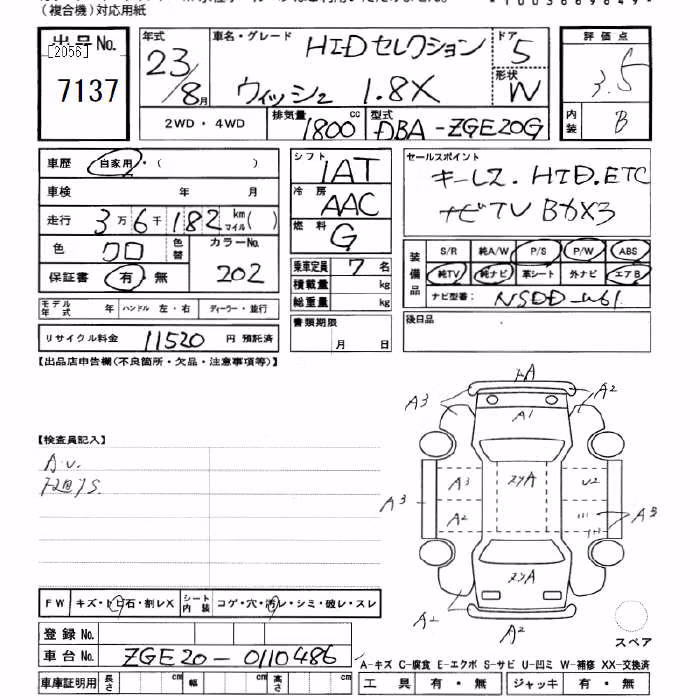 (複合機)対応用紙
出品No.
[2056]
7137
年式
23/8月
車名・グレード
HIDセレクション
ウィッシュ 1.8X
ドア
5
形状
W
評価点
3.5
内装
B
2WD・4WD
排気量
1800cc
型式
DBA-ZGE20G
車歴
自家用・( )
車検 年 月
走行 3万6千182 km マイル( )
色
クロ
色替
カラーNo.
202
保証書 有・無
モデル年式 年 ハンドル 左・右 ディーラー・並行
リサイクル料金 11520 円 預託済
シフト
IAT
冷房
AAC
燃料
G
乗車定員 7 名
積載量 kg
総重量 kg
書類期限
月 日
セールスポイント
キーレス. HID.ETC
ナビTV Bカメラ
装備品
S/R 純A/W P/S P/W ABS
純TV 純ナビ 革シート 外ナビ エアB
ナビ型番: NSDD-W61
後日品
【出品店申告欄(不良箇所・欠品・注意事項等)】
【検査員記入】
FW キズ・トビ石・割レX
シート内装 コゲ・穴・汚レ・シミ・破レ・スレ
登録No.
車台No. ZGE20-0110486
車庫証明用 長さ cm 幅 cm 高さ cm
A3
A2
A1
A3
A2
U2
A3
A3
A2
A2
スペア
A-キズ C-腐食 E-エクボ S-サビ U-凹ミ W-補修 XX-交換済
工具 有・無 ジャッキ 有・無